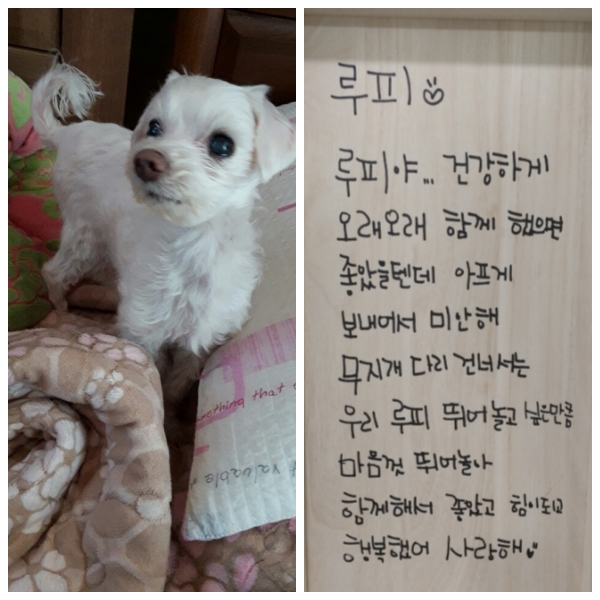 루피
루피야... 건강하게
오래오래 함께 했으면
좋았을텐데 아프게
보내에서 미안해
무지개 다리 건너서는
우리 루피 뛰어놀고 싶은만큼
마음껏 뛰어놀아
함께해서 좋았고 힘이되고
행복했어 사랑해
nothing that
valuable